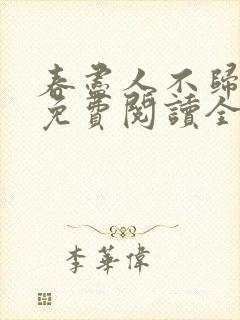 春盡人不歸
免費閱讀全
李華偉